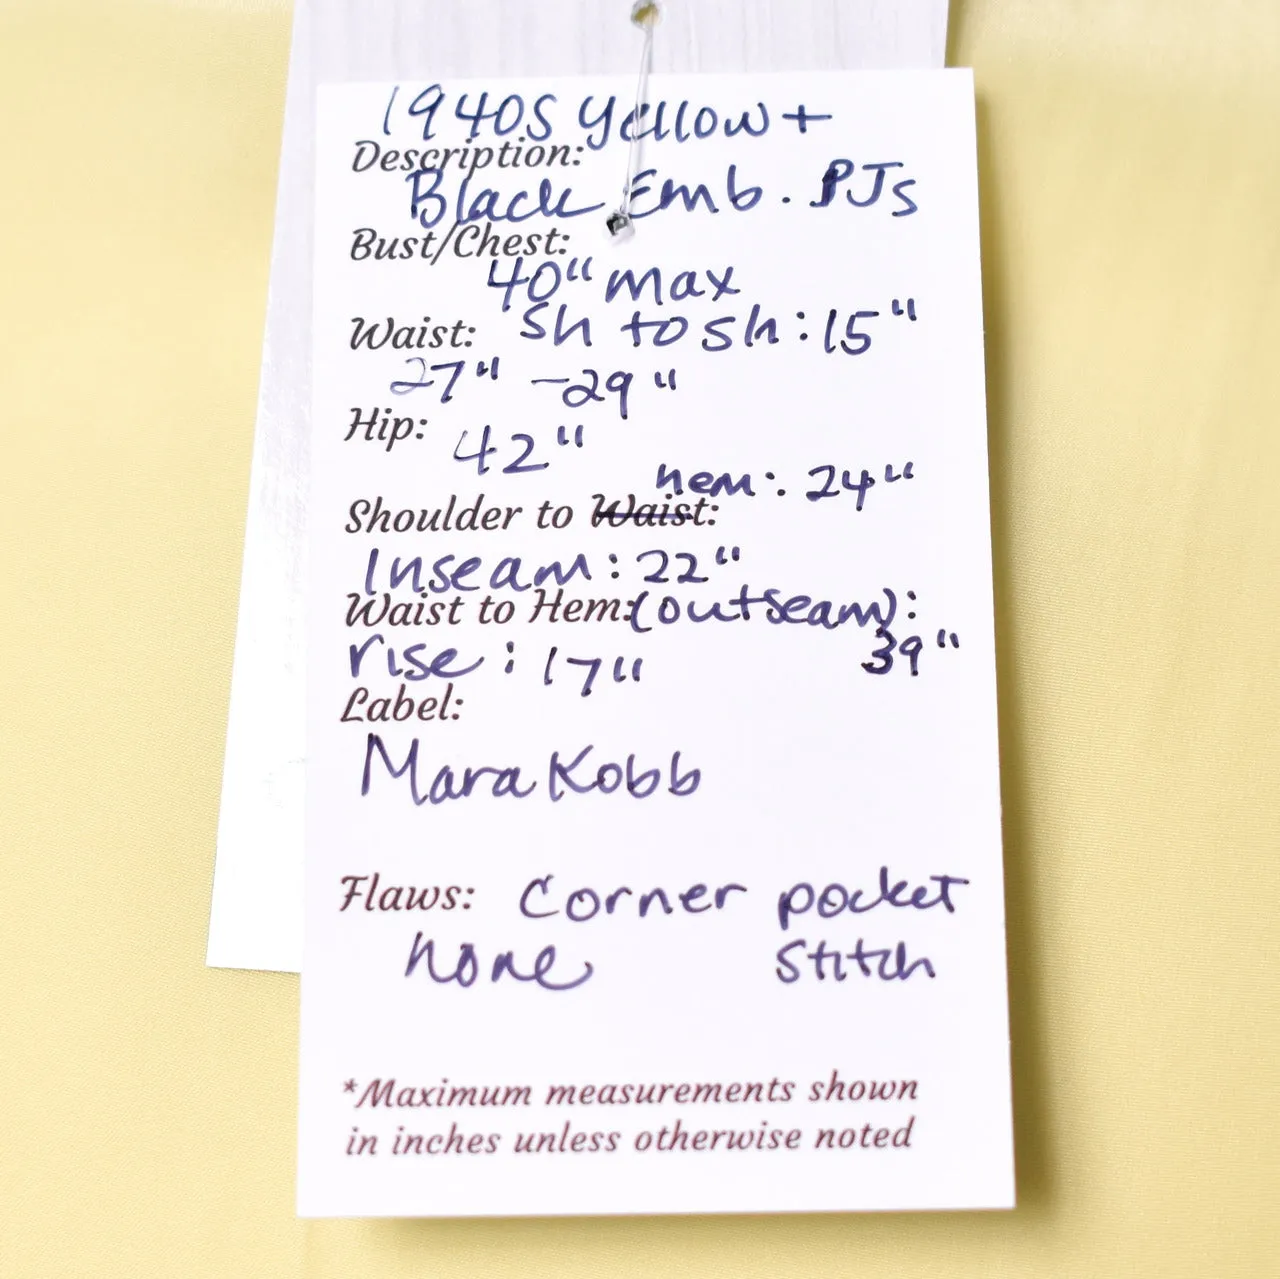 1940s Yellow +
Description:
Black Emb. PJs
Bust/Chest:
40" max
Waist: sh to sh: 15"
27" - 29"
Hip: 42"
hem: 24"
Shoulder to Waist:
Inseam: 22"
Waist to Hem: (outseam):
rise: 17" 39"
Label:
Mara Kobb
Flaws: Corner pocket
none stitch
*Maximum measurements shown
in inches unless otherwise noted